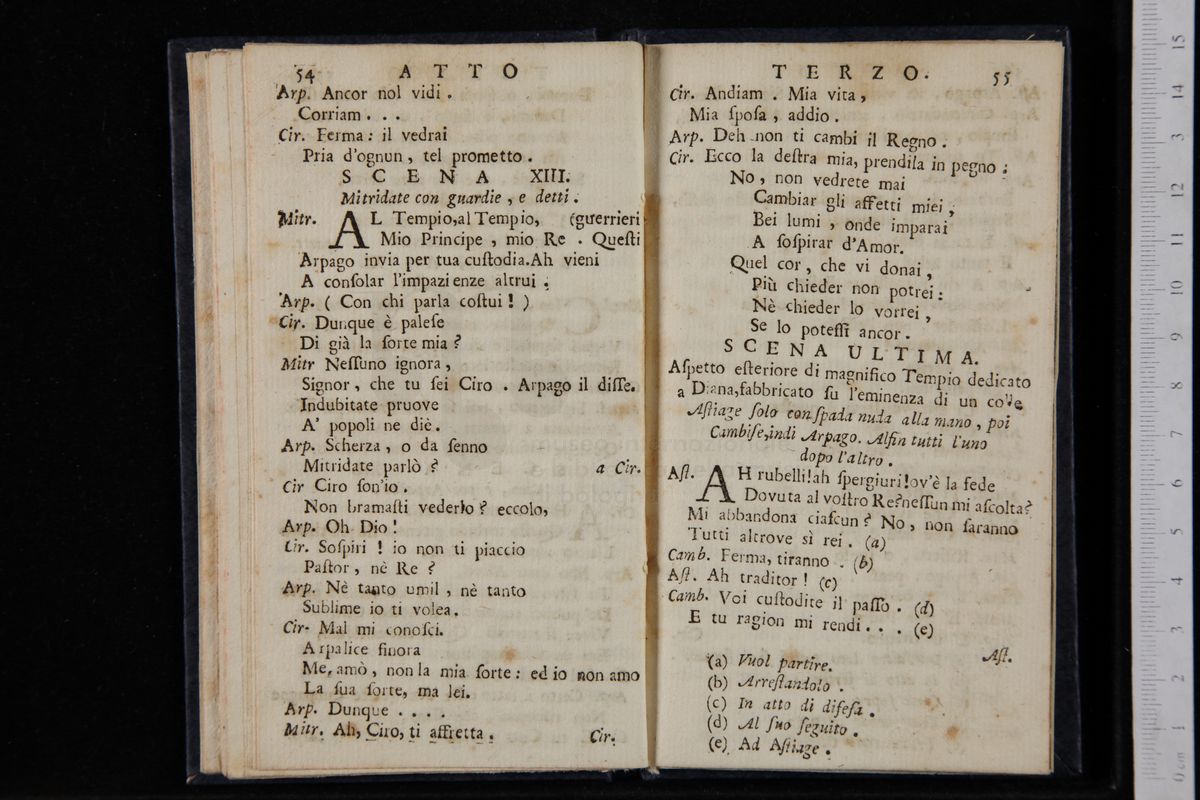 54 ATTO
Arp. Ancor nol vidi .
Corriam . . .
Cir. Ferma : il vedrai
Pria d'ognun , tel prometto .
SCENA XIII.
Mitridate con guardie , e detti .
Mitr. AL Tempio,al Tempio, (guerrieri
Mio Principe , mio Re . Queſti
Arpago invia per tua cuſtodia.Ah vieni
A conſolar l'impazienze altrui .
Arp. ( Con chi parla coſtui ! )
Cir. Dunque è paleſe
Di già la ſorte mia ?
Mitr Neſſuno ignora ,
Signor , che tu ſei Ciro . Arpago il diſſe.
Indubitate pruove
A' popoli ne diè .
Arp. Scherza , o da ſenno
Mitridate parlò ? a Cir.
Cir Ciro ſon'io .
Non bramaſti vederlo ? eccolo,
Arp. Oh Dio !
Cir. Soſpiri ! io non ti piaccio
Paſtor , nè Re ?
Arp. Nè tanto umil , nè tanto
Sublime io ti volea .
Cir- Mal mi conoſci.
Arpalice finora
Me, amò , non la mia ſorte : ed io non amo
La ſua ſorte, ma lei.
Arp. Dunque . . . .
Mitr. Ah, Ciro, ti affretta .
Cir.
TERZO. 55
Cir. Andiam . Mia vita ,
Mia ſpoſa , addio .
Arp. Deh non ti cambi il Regno .
Cir. Ecco la deſtra mia, prendila in pegno :
No , non vedrete mai
Cambiar gli affetti miei ,
Bei lumi , onde imparai
A ſoſpirar d'Amor.
Quel cor , che vi donai ,
Più chieder non potrei :
Nè chieder lo vorrei ,
Se lo poteſſi ancor .
SCENA ULTIMA.
Aſpetto eſteriore di magnifico Tempio dedicato
a Diana,fabbricato ſu l'eminenza di un colle
Aſtiage ſolo con ſpada nuda alla mano , poi
Cambiſe,indi Arpago. Alfin tutti l'uno
dopo l'altro .
Aſt. AH rubelli!ah ſpergiuri!ov'è la fede
Dovuta al voſtro Re?neſſun mi aſcolta?
Mi abbandona ciaſcun ? No , non ſaranno
Tutti altrove sì rei . (a)
Camb. Ferma, tiranno . (b)
Aſt. Ah traditor ! (c)
Camb. Voi cuſtodite il paſſo . (d)
E tu ragion mi rendi . . . (e)
Aſt.
(a) Vuol partire.
(b) Arreſtandolo .
(c) In atto di difeſa .
(d) Al ſuo ſeguito .
(e) Ad Aſtiage .